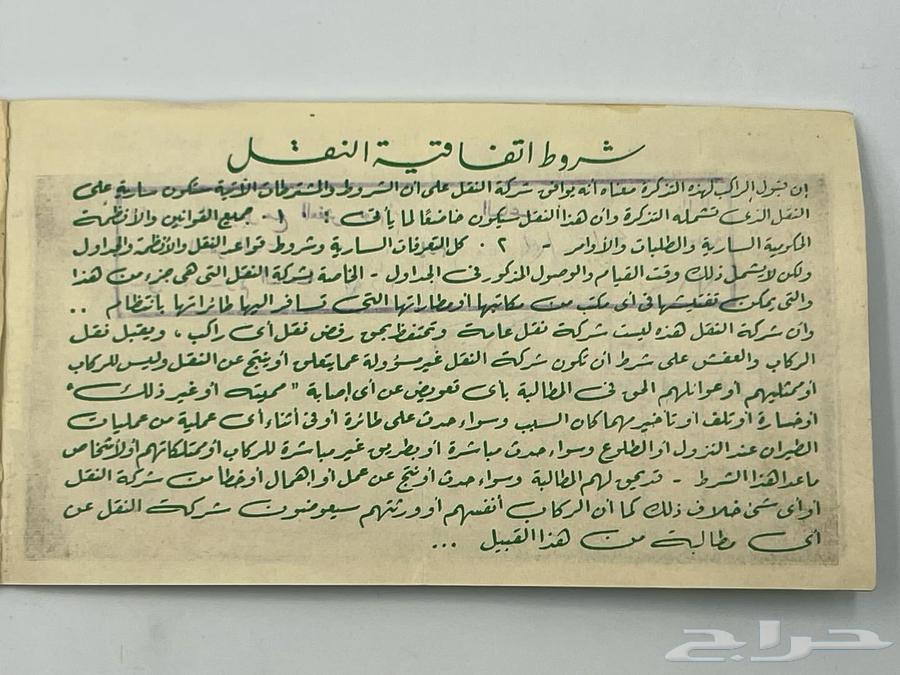 شروط اتفاقية النقل
إن قبول الراكب لهذه التذكرة معناه أنه يوافق شركة النقل على أن الشروط والمشترطات الآتية ستكون سارية على
النقل الذى تشمله التذكرة وأن هذا النقل سيكون خاضعًا لما يأتى : ١ - جميع القوانين والأنظمة
الحكومية السارية والطلبات والأوامر - ٢ - كل التعرفات السارية وشروط قواعد النقل والأنظمة والجداول
ولكن لا تشمل ذلك وقت القيام والوصول المذكور فى الجداول - الخاصة بشركة النقل التى هى جزء من هذا
والتى يمكن تفتيشها فى أى مكتب من مكاتبها أو مطاراتها التى تسافر اليها طائراتها بانتظام ..
وأن شركة النقل هذه ليست شركة نقل عامة وتحتفظ بحق رفض نقل أى راكب ، ويقبل نقل
الركاب والعفش على شرط أن تكون شركة النقل غير مسؤولة عما يتعلق أو ينتج عن النقل وليس للركاب
أو ممثليهم أو عوائلهم الحق فى المطالبة بأى تعويض عن أى إصابة " مميته أو غير ذلك "
أو خسارة أو تلف أو تأخير مهما كان السبب وسواء حدث على طائرة أو فى أثناء أى عملية من عمليات
الطيران عند النزول أو الطلوع وسواء حدث مباشرة أو بطريق غير مباشرة للركاب أو ممتلكاتهم أو لأشخاص
ماعدا هذا الشرط - قد يحق لهم المطالبة وسواء حدث أو نتج عن عمل أو اهمال أو خطا من شركة النقل
أو أى شئ خلاف ذلك كما أن الركاب أنفسهم أو ورثتهم سيعوضون شركة النقل عن
أى مطالبة من هذا القبيل ...
حراج